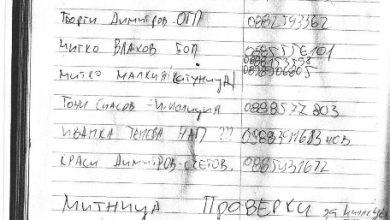 Георги Димитров ОГП 0882593362
Митко Влахов БОП 0885556101
0888153598
Митко Малкия (Катуница) 0898906805
Тони Спасов - Полиция 0888577803
Иванка Танева НАП ?? нов
Краси Димитров - счетов. 0885431672
Митница Проверки за